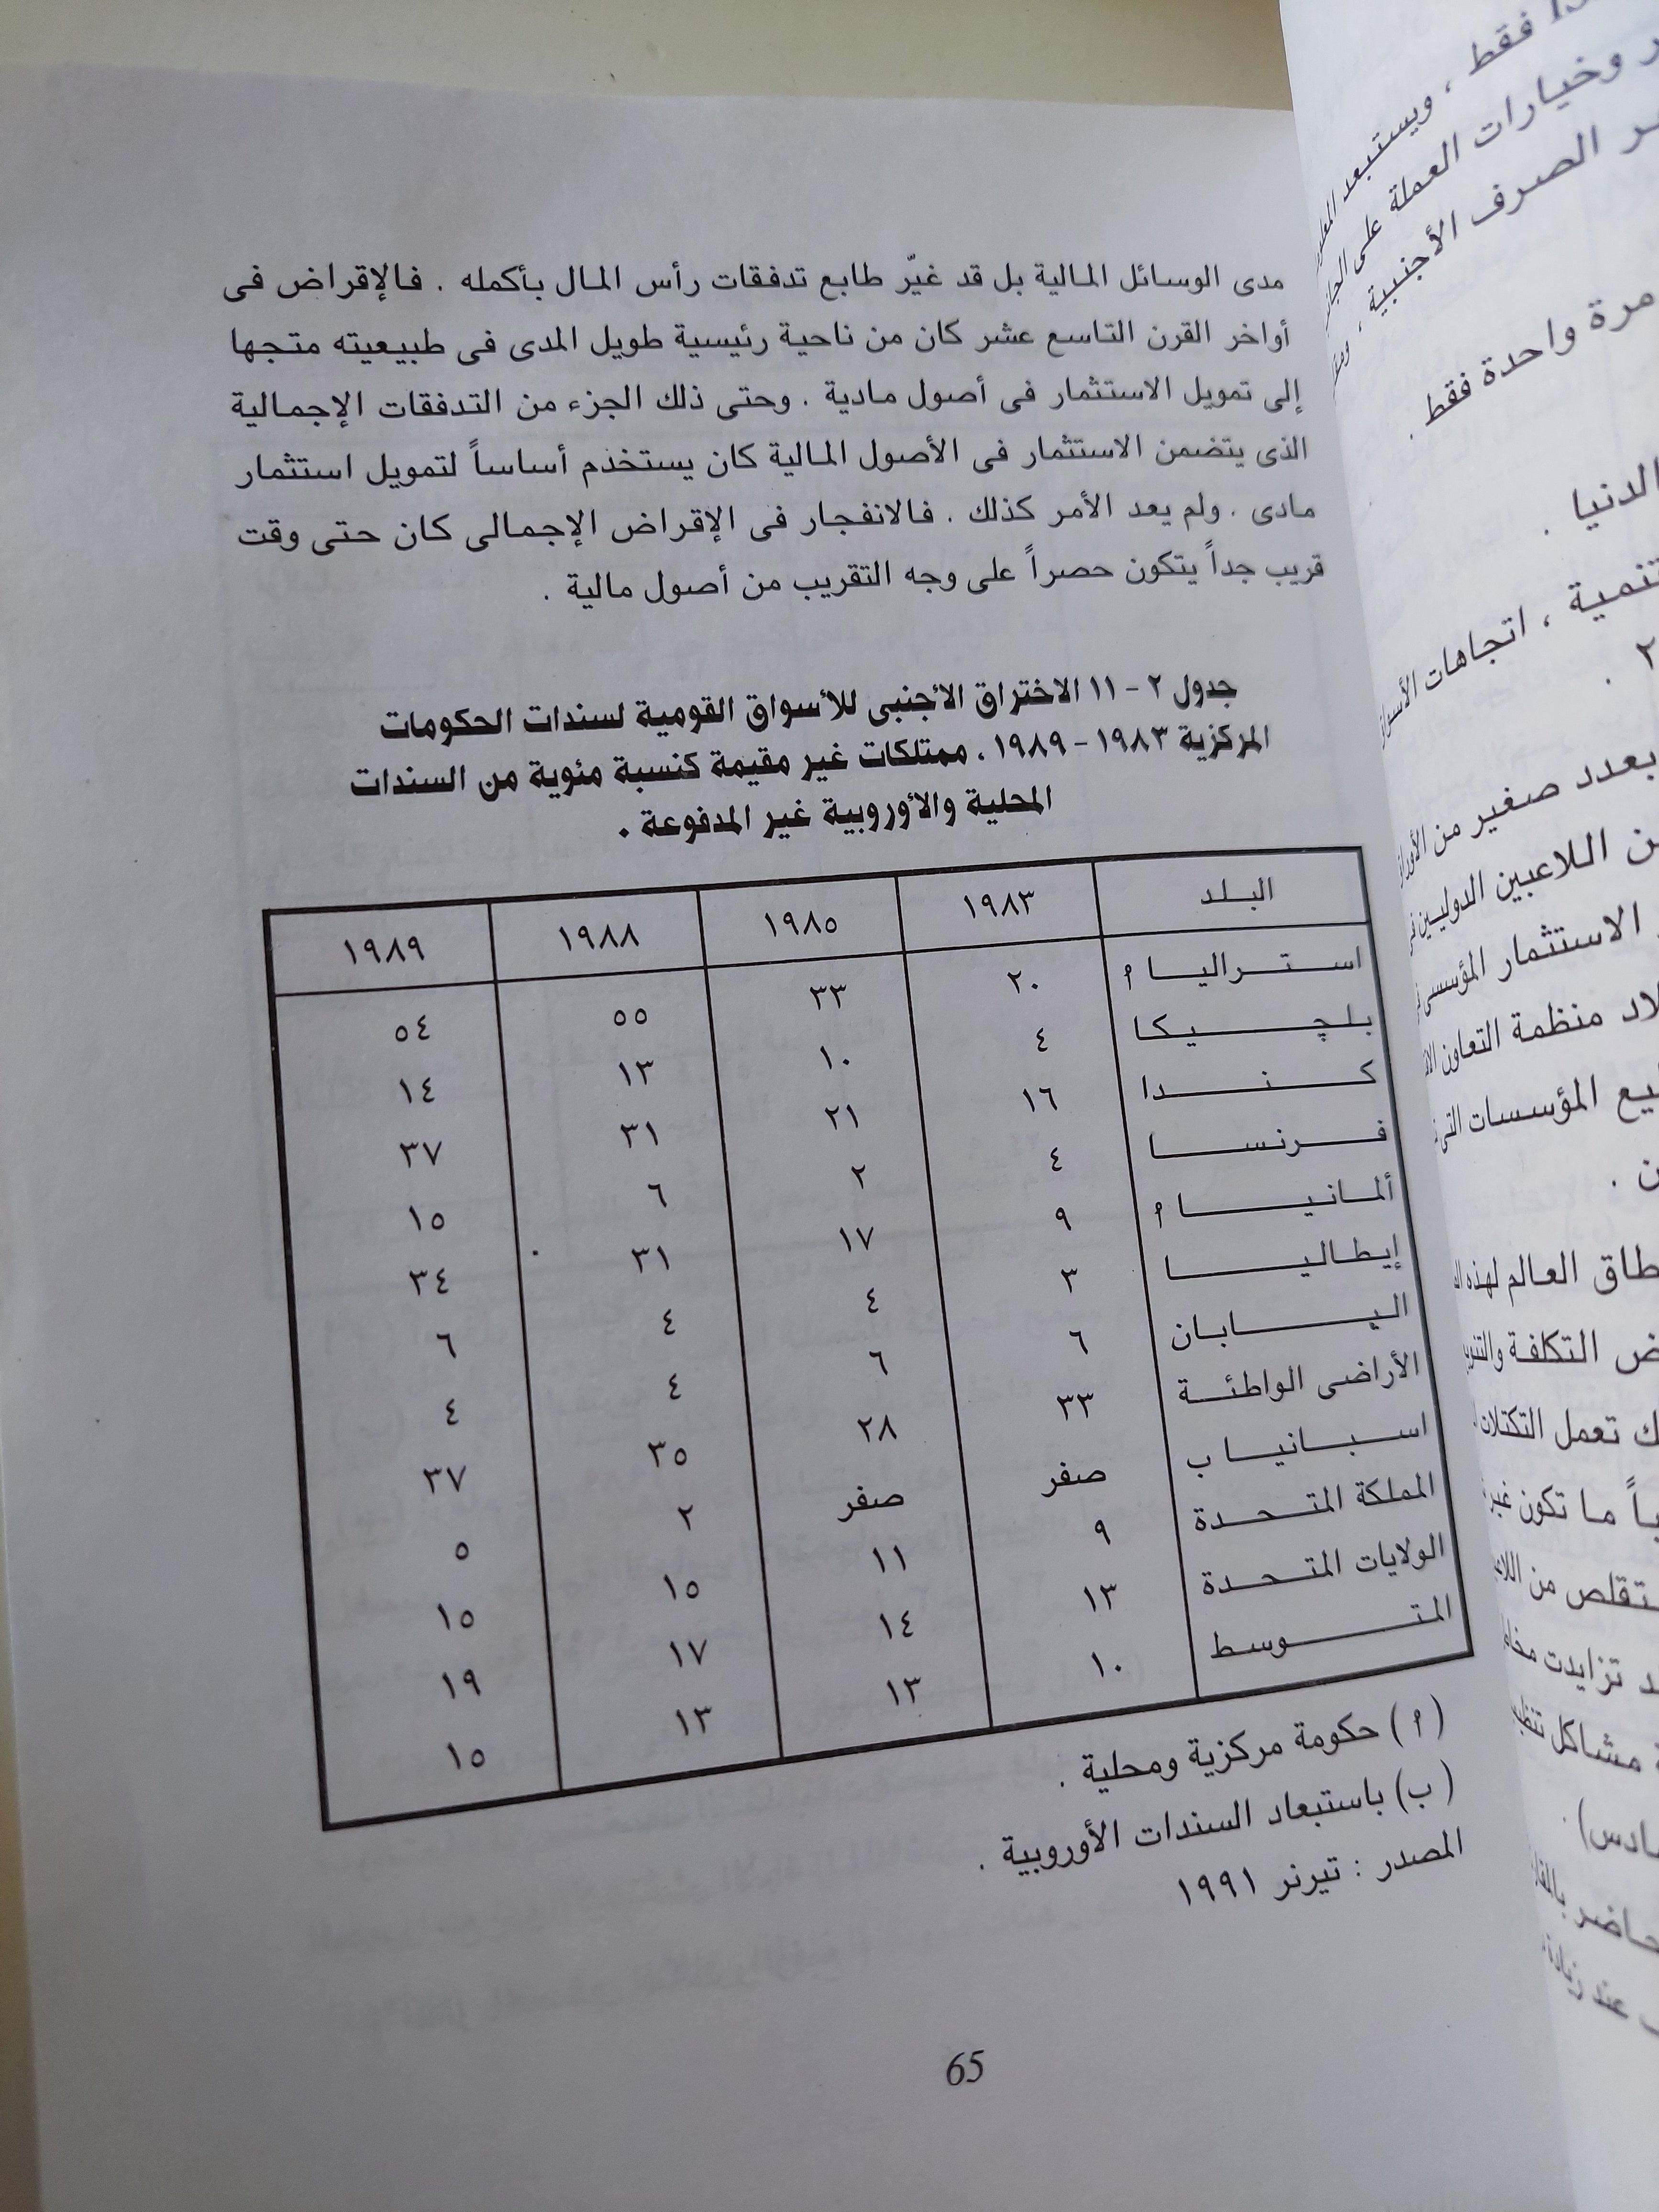 مدى الوسائل المالية بل قد غيّر طابع تدفقات رأس المال بأكمله . فالإقراض فى
أواخر القرن التاسع عشر كان من ناحية رئيسية طويل المدى فى طبيعيته متجها
إلى تمويل الاستثمار فى أصول مادية . وحتى ذلك الجزء من التدفقات الإجمالية
الذى يتضمن الاستثمار فى الأصول المالية كان يستخدم أساساً لتمويل استثمار
مادى . ولم يعد الأمر كذلك . فالانفجار فى الإقراض الإجمالى كان حتى وقت
قريب جداً يتكون حصراً على وجه التقريب من أصول مالية .
جدول ٢ - ١١ الاختراق الأجنبى للأسواق القومية لسندات الحكومات
المركزية ١٩٨٣ - ١٩٨٩ . ممتلكات غير مقيمة كنسبة مئوية من السندات
المحلية والأوروبية غير المدفوعة .
البلد ١٩٨٣ ١٩٨٥ ١٩٨٨ ١٩٨٩
استراليا أ ٢٠ ٣٣ ٥٥ ٥٤
بلچيكا ٤ ١٠ ١٣ ١٤
كندا ١٦ ٢١ ٣١ ٣٧
فرنسا ٤ ٢ ٦ ١٥
ألمانيا أ ٩ ١٧ ٣١ ٣٤
إيطاليا ٣ ٤ ٤ ٦
اليابان ٦ ٦ ٤ ٤
الأراضى الواطئة ٣٣ ٢٨ ٣٥ ٣٧
اسبانيا ب صفر صفر ٢ ٥
المملكة المتحدة ٩ ١١ ١٥ ١٥
الولايات المتحدة ١٣ ١٤ ١٧ ١٩
المتوسط ١٠ ١٣ ١٣ ١٥
( أ ) حكومة مركزية ومحلية .
( ب) باستبعاد السندات الأوروبية .
المصدر : تيرنر ١٩٩١
65
فقط ، ويستبعد
وخيارات العملة على
الصرف الأجنبية ،
مرة واحدة فقط .
الدنيا .
، اتجاهات
٢ .
بعدد صغير من
اللاعبين الدوليين
الاستثمار
منظمة التعاون
المؤسسات
العالم لهذه
التكلفة
تعمل التكتلات
ما تكون
من
تزايدت
مشاكل
عند زيادة